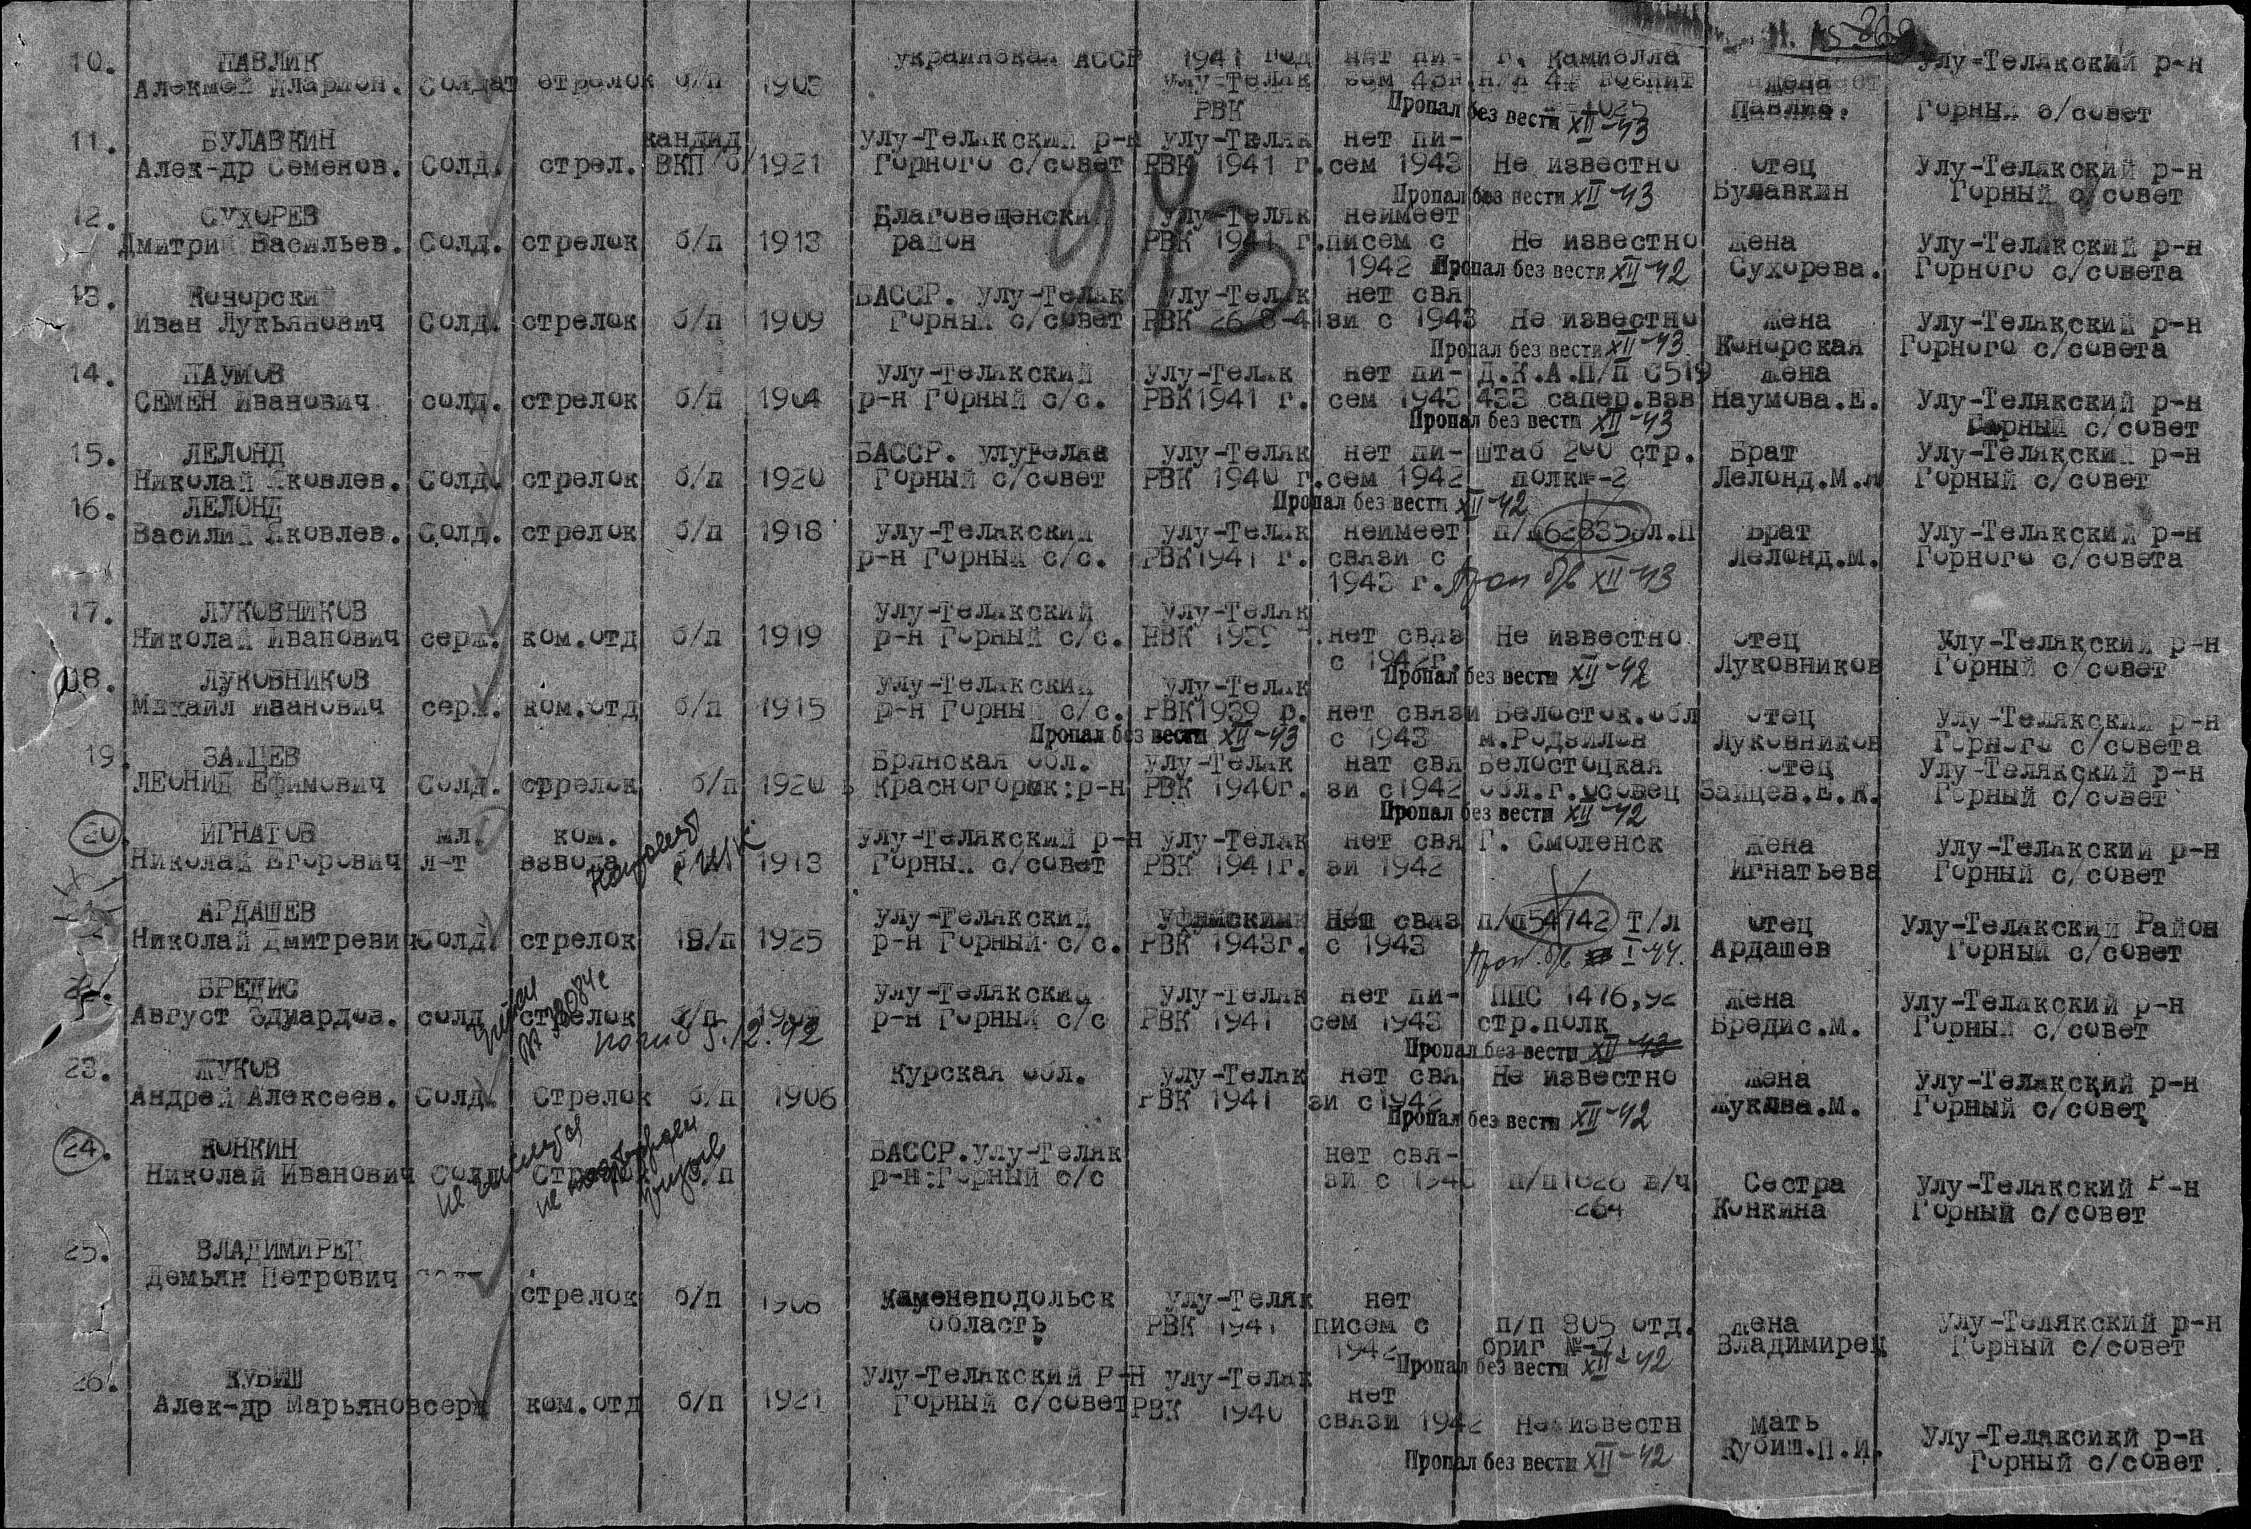 10. ПАВЛИК украинская АССР 1941 год нет пи- г. Камиелла Улу-Телякский р-н
Алексей Иларион. Солдат стрелок б/п 1903 Улу-Теляк сем 43г п/п жена
РВК Пропал без вести XII-43 1025 Павлик. Горный с/совет
11. БУЛАВКИН кандид Улу-Телякский р-н Улу-Теляк нет пи-
Алек-др Семенов. Солд. стрел. ВКП/б/ 1921 Горного с/совет РВК 1941 г. сем 1943 Не известно отец Улу-Телякский р-н
Пропал без вести XII-43 Булавкин Горный с/совет
12. СУХОРЕВ Благовещенский Улу-Теляк неимеет
Дмитрий Васильев. Солд. стрелок б/п 1913 район РВК 1941 г. писем с Не известно жена Улу-Телякский р-н
1942 Пропал без вести XII-42 Сухорева. Горного с/совета
13. Конорский БАССР. Улу-Теляк Улу-Теляк нет свя
Иван Лукьянович Солд. стрелок б/п 1909 Горный с/совет РВК 26/8-41 зи с 1943 Не известно жена Улу-Телякский р-н
Пропал без вести XII-43 Конорская Горного с/совета
14. НАУМОВ Улу-Телякский Улу-Теляк нет пи- Д.К.А.П/П С519 жена
СЕМЕН Иванович солд. стрелок б/п 1904 р-н Горный с/с. РВК1941 г. сем 1943 433 сапер.взв Наумова.Е. Улу-Телякский р-н
Пропал без вести XII-43 Горный с/совет
15. ЛЕЛОНД БАССР. улуРеляв Улу-Теляк нет пи- Штаб 200 стр. Брат Улу-Телякский р-н
Николай Яковлев. Солд. стрелок б/п 1920 Горный с/совет РВК 1940 г. сем 1942 полк -2 Лелонд.М.л Горный с/совет
16. ЛЕЛОНД Пропал без вести XII-42
Василий Яковлев. Солд. стрелок б/п 1918 Улу-Телякский Улу-Теляк неимеет п/п 62835 л.П Брат Улу-Телякский р-н
р-н Горный с/с. РВК1941 г. связи с Лелонд.М. Горного с/совета
1943 г. Проп б/в XII-43
17. ЛУКОВНИКОВ Улу-Телякский Улу-Теляк
Николай Иванович серж. ком.отд б/п 1919 р-н Горный с/с. РВК 1939 г. нет связ Не известно отец Улу-Телякский р-н
с 1942г. Пропал без вести XII-42 Луковников Горный с/совет
18. ЛУКОВНИКОВ Улу-Телякский Улу-Теляк
Михаил Иванович серж. ком.отд б/п 1915 р-н Горный с/с. РВК1939 г. нет связи Белосток.обл отец Улу-Телякский р-н
Пропал без вести XII-43 с 1943 м.Родзилов Луковников Горного с/совета
19. ЗАЙЦЕВ Брянская обл. Улу-Теляк нат свя Белостоцкая отец Улу-Телякский р-н
ЛЕОНИД Ефимович Солд. стрелок б/п 1920 Красногорск:р-н РВК 1940г. зи с1942 обл.г.осовец Зайцев.Е.К. Горный с/совет
Пропал без вести XII-42
20. ИГНАТОВ мл. ком. Улу-Телякский р-н Улу-Теляк нет свя Г. Смоленск жена Улу-Телякский р-н
Николай Егорович л-т взвода 1913 Горный с/совет РВК 1941г. зи 1942 Игнатьева Горный с/совет
АРДАШЕВ Улу-Телякский Уфимским Нет связ п/п 54742 Т/л отец Улу-Телякский Район
Николай Дмитревич Солд. стрелок б/п 1925 р-н Горный с/с. РВК 1943г. с 1943 Проп. б/в I-44. Ардашев Горный с/совет
БРЕДИС Улу-Телякский Улу-Теляк нет пи- ППС 1476,92 жена Улу-Телякский р-н
Август Эдуардов. солд стрелок б/п р-н Горный с/с РВК 1941 сем 1943 стр.полк Бредис.М. Горный с/совет
погиб 5.12.42 Пропал без вести XII-43
23. ЖУКОВ Курская обл. Улу-Теляк нет свя Не известно жена Улу-Телякский р-н
Андрей Алексеев. Солд. Стрелок б/п 1906 РВК 1941 зи с1942 Жукова.М. Горный с/совет
Пропал без вести XII-42
24. КОНКИН не числится БАССР.Улу-Теляк нет свя-
Николай Иванович Солд р-н:Горный с/с зи с п/п1626 в/ч Сестра Улу-Телякский Р-н
264 Конкина Горный с/совет
25. ВЛАДИМИРЕЦ
Демьян Петрович
стрелок б/п 1908 Каменеподольск Улу-Теляк нет
область РВК 1941 писем с п/п 805 отд. жена Улу-Телякский р-н
1942 бриг №-1 Владимирец Горный с/совет
Пропал без вести XII-42
26. КУБИШ Улу-Телякский Р-Н Улу-Теляк нет
Алек-др Марьянов серж ком.отд б/п 1921 Горный с/совет РВК 1940 связи 1942 Не известн мать
Кубиш.П.И. Улу-Телаксикй р-н
Пропал без вести XII-42 Горный с/совет